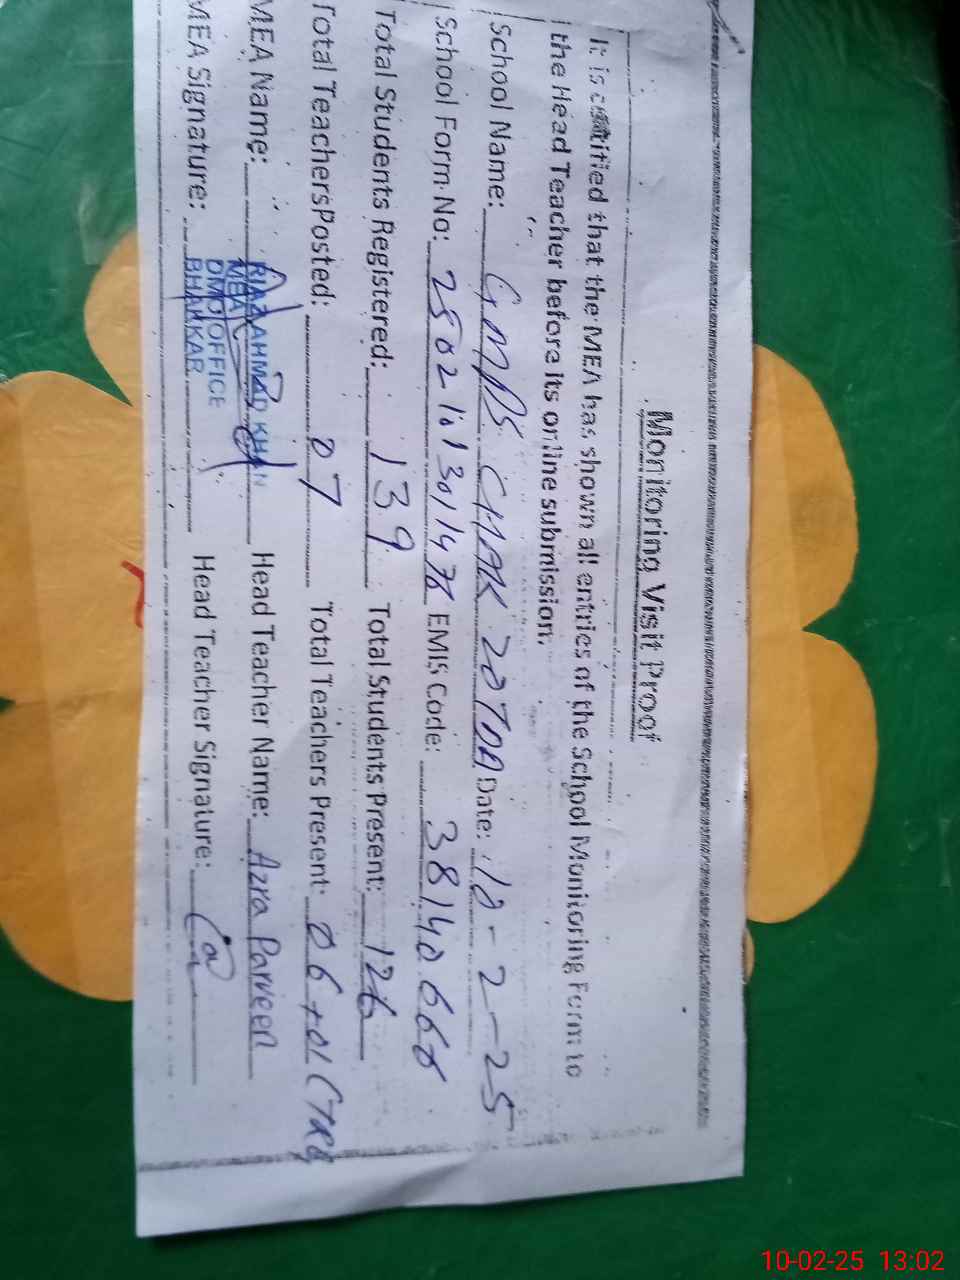 Monitoring Visit Proof
It is certified that the MEA has shown all entries of the School Monitoring Form to
the Head Teacher before its online submission.
School Name: GMPS CHAK 20 TDA Date: 10-2-25
School Form No: EMIS Code:
Total Students Registered: 139 Total Students Present: 126
Total TeachersPosted: 07 Total Teachers Present: 06+01 (TRG
MEA Name: RIAZ AHMAD KHAN Head Teacher Name: Azra Parveen
MEA
MEA Signature: DMO OFFICE Head Teacher Signature:
BHAKKAR
10-02-25 13:02